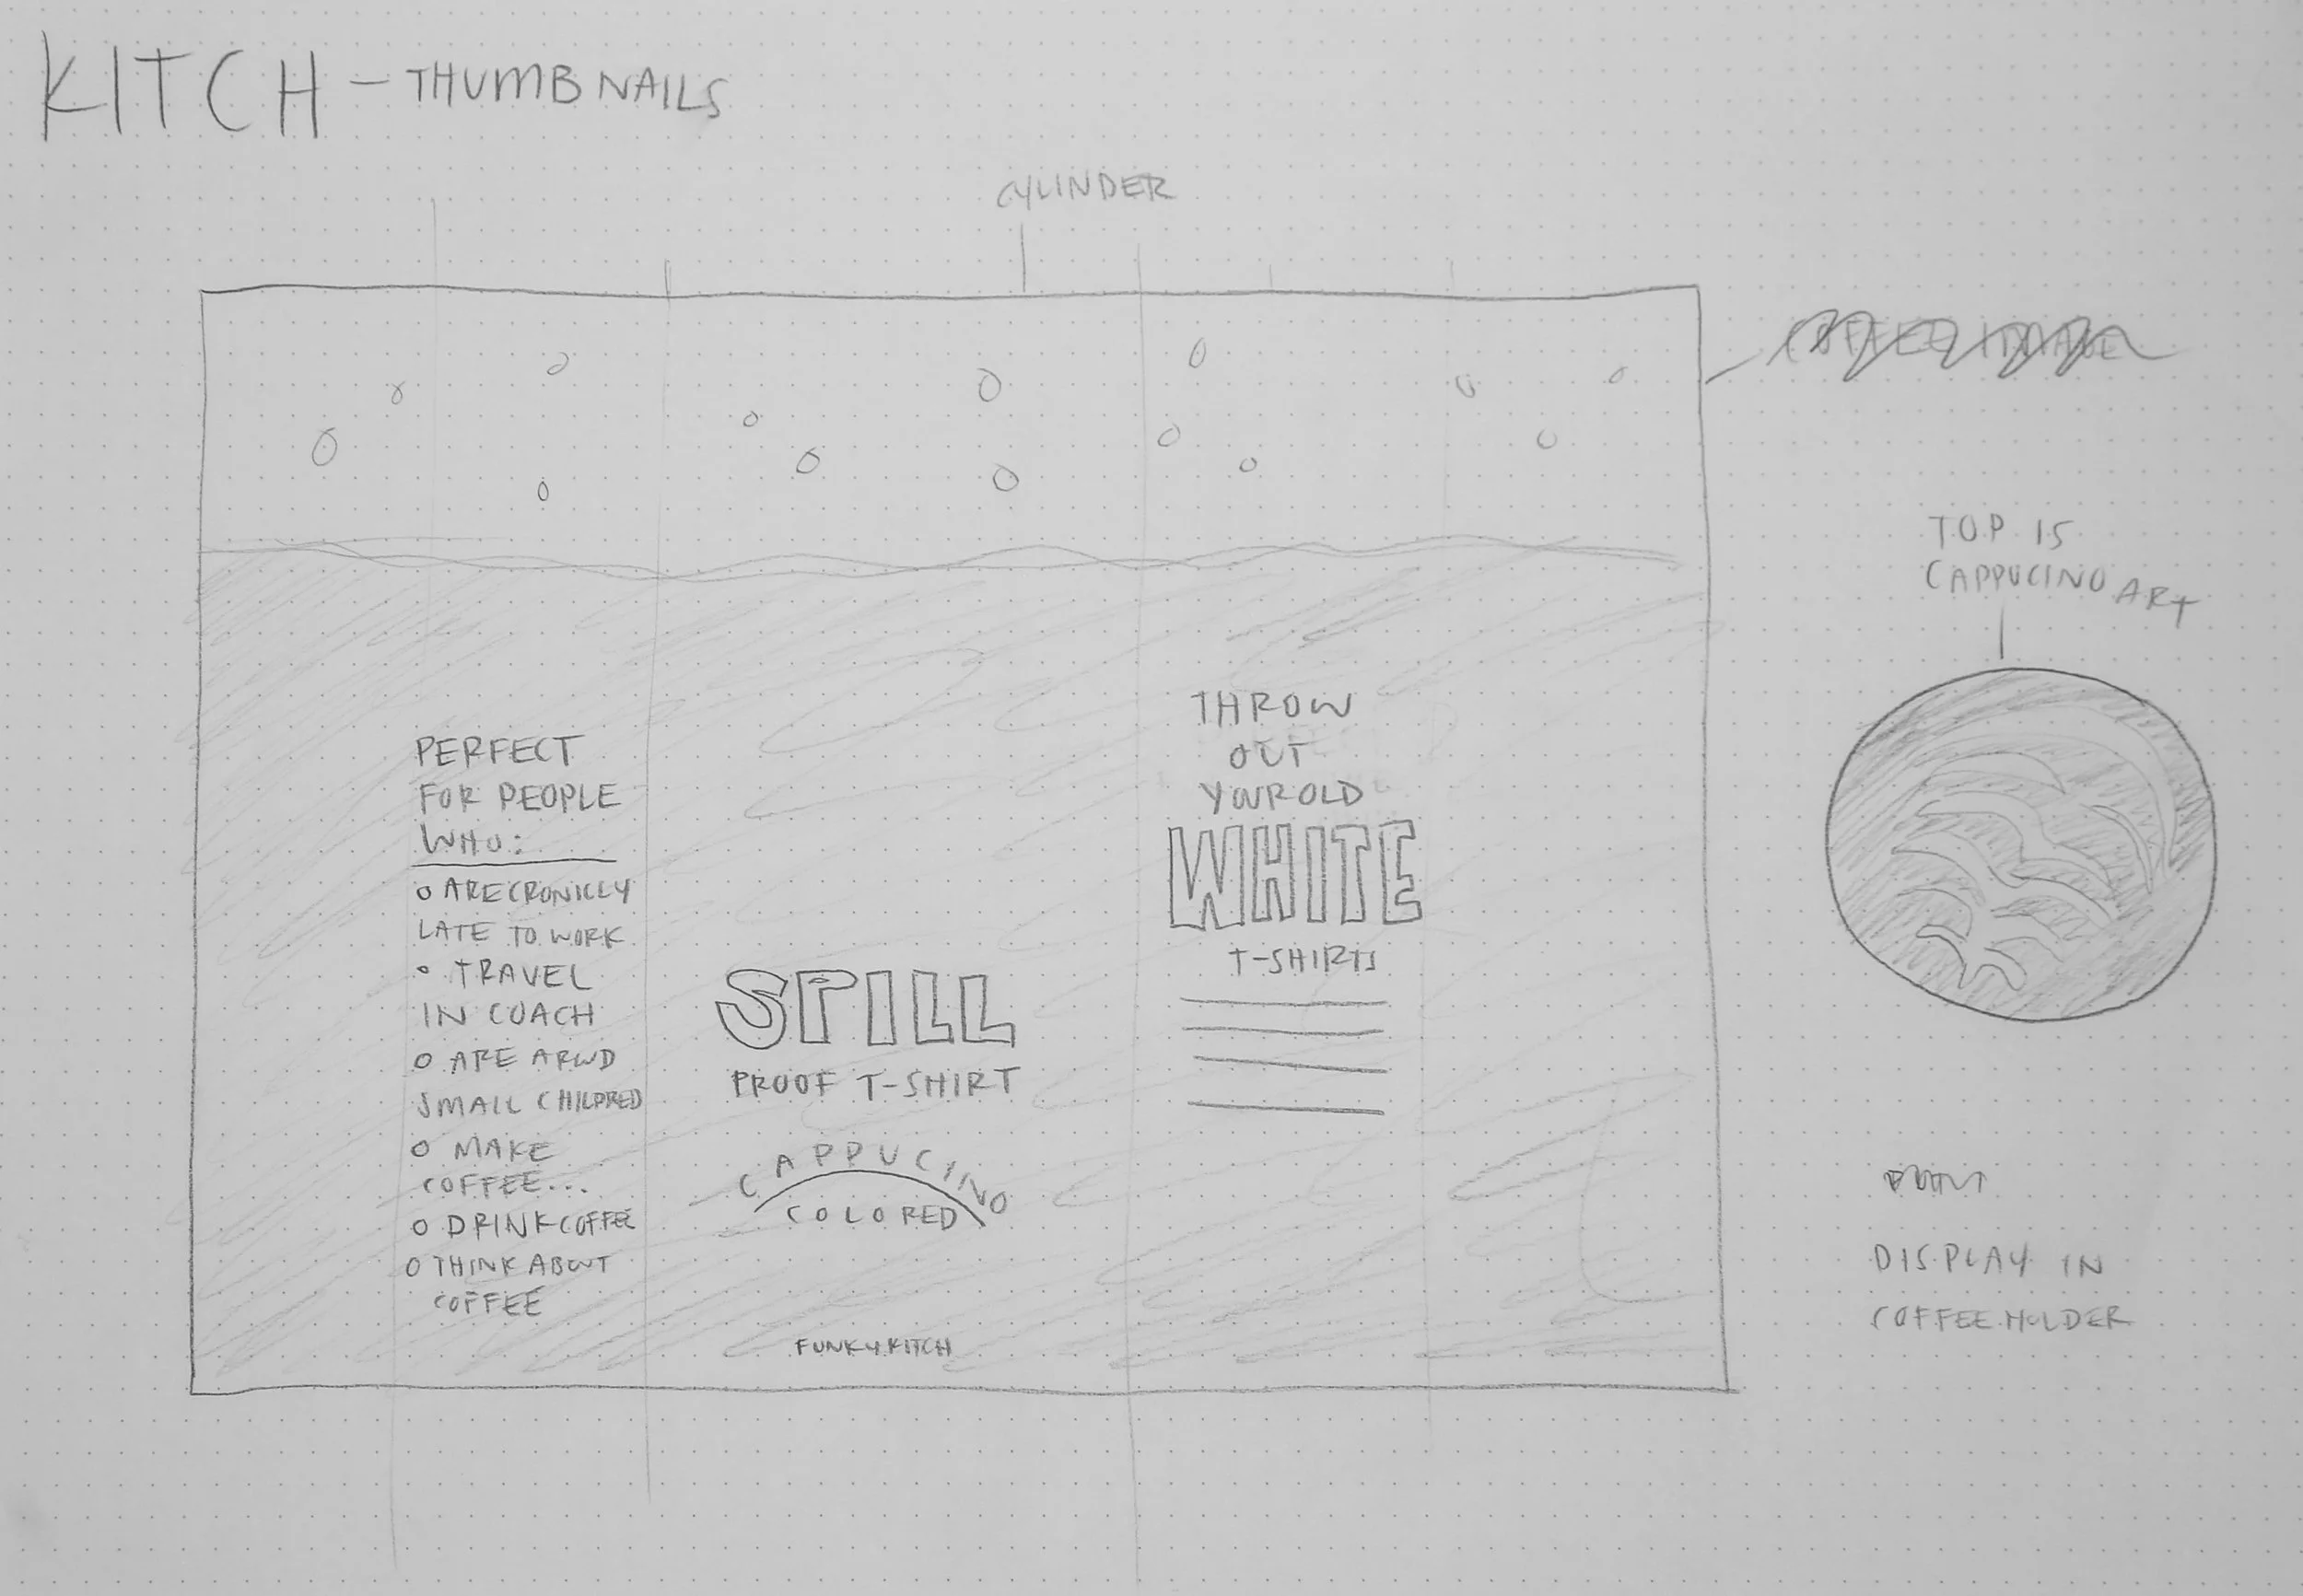 KITCH - THUMBNAILS
CYLINDER
TOP IS
CAPPUCINO ART
PERFECT
FOR PEOPLE
WHO:
ARE CRONICLY
LATE TO WORK
TRAVEL
IN COACH
ARE AROUND
SMALL CHILDRED
MAKE
COFFEE...
DRINK COFFEE
THINK ABOUT
COFFEE
SPILL
PROOF T-SHIRT
CAPPUCINO
COLORED
FUNKYKITCH
THROW
OUT
YOUR OLD
WHITE
T-SHIRTS
DISPLAY IN
COFFEE HOLDER